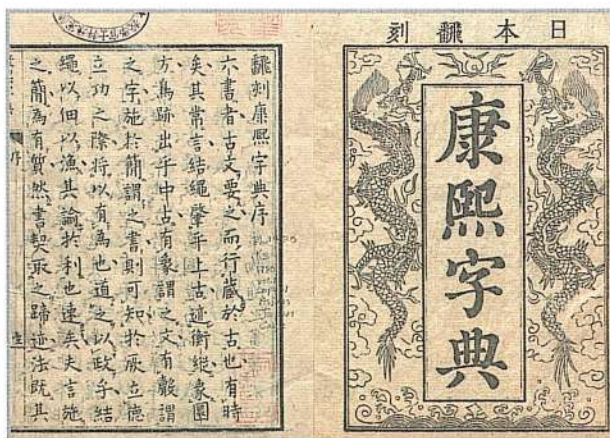 日本飜刻
康熙字典
飜刻康熙字典序
六書者古文要之而行藏於古也有時
矣其常言結繩肇乎上古衡縱象圓
方鳥跡出乎中古有象謂之文有謂
之字施於簡謂之書則可知於厥立德
立功之際將以有為也道之以政乎結
繩以佃以漁其論於利也速矣夫言施
之簡為有質然書契取之蹄迹法既其
序